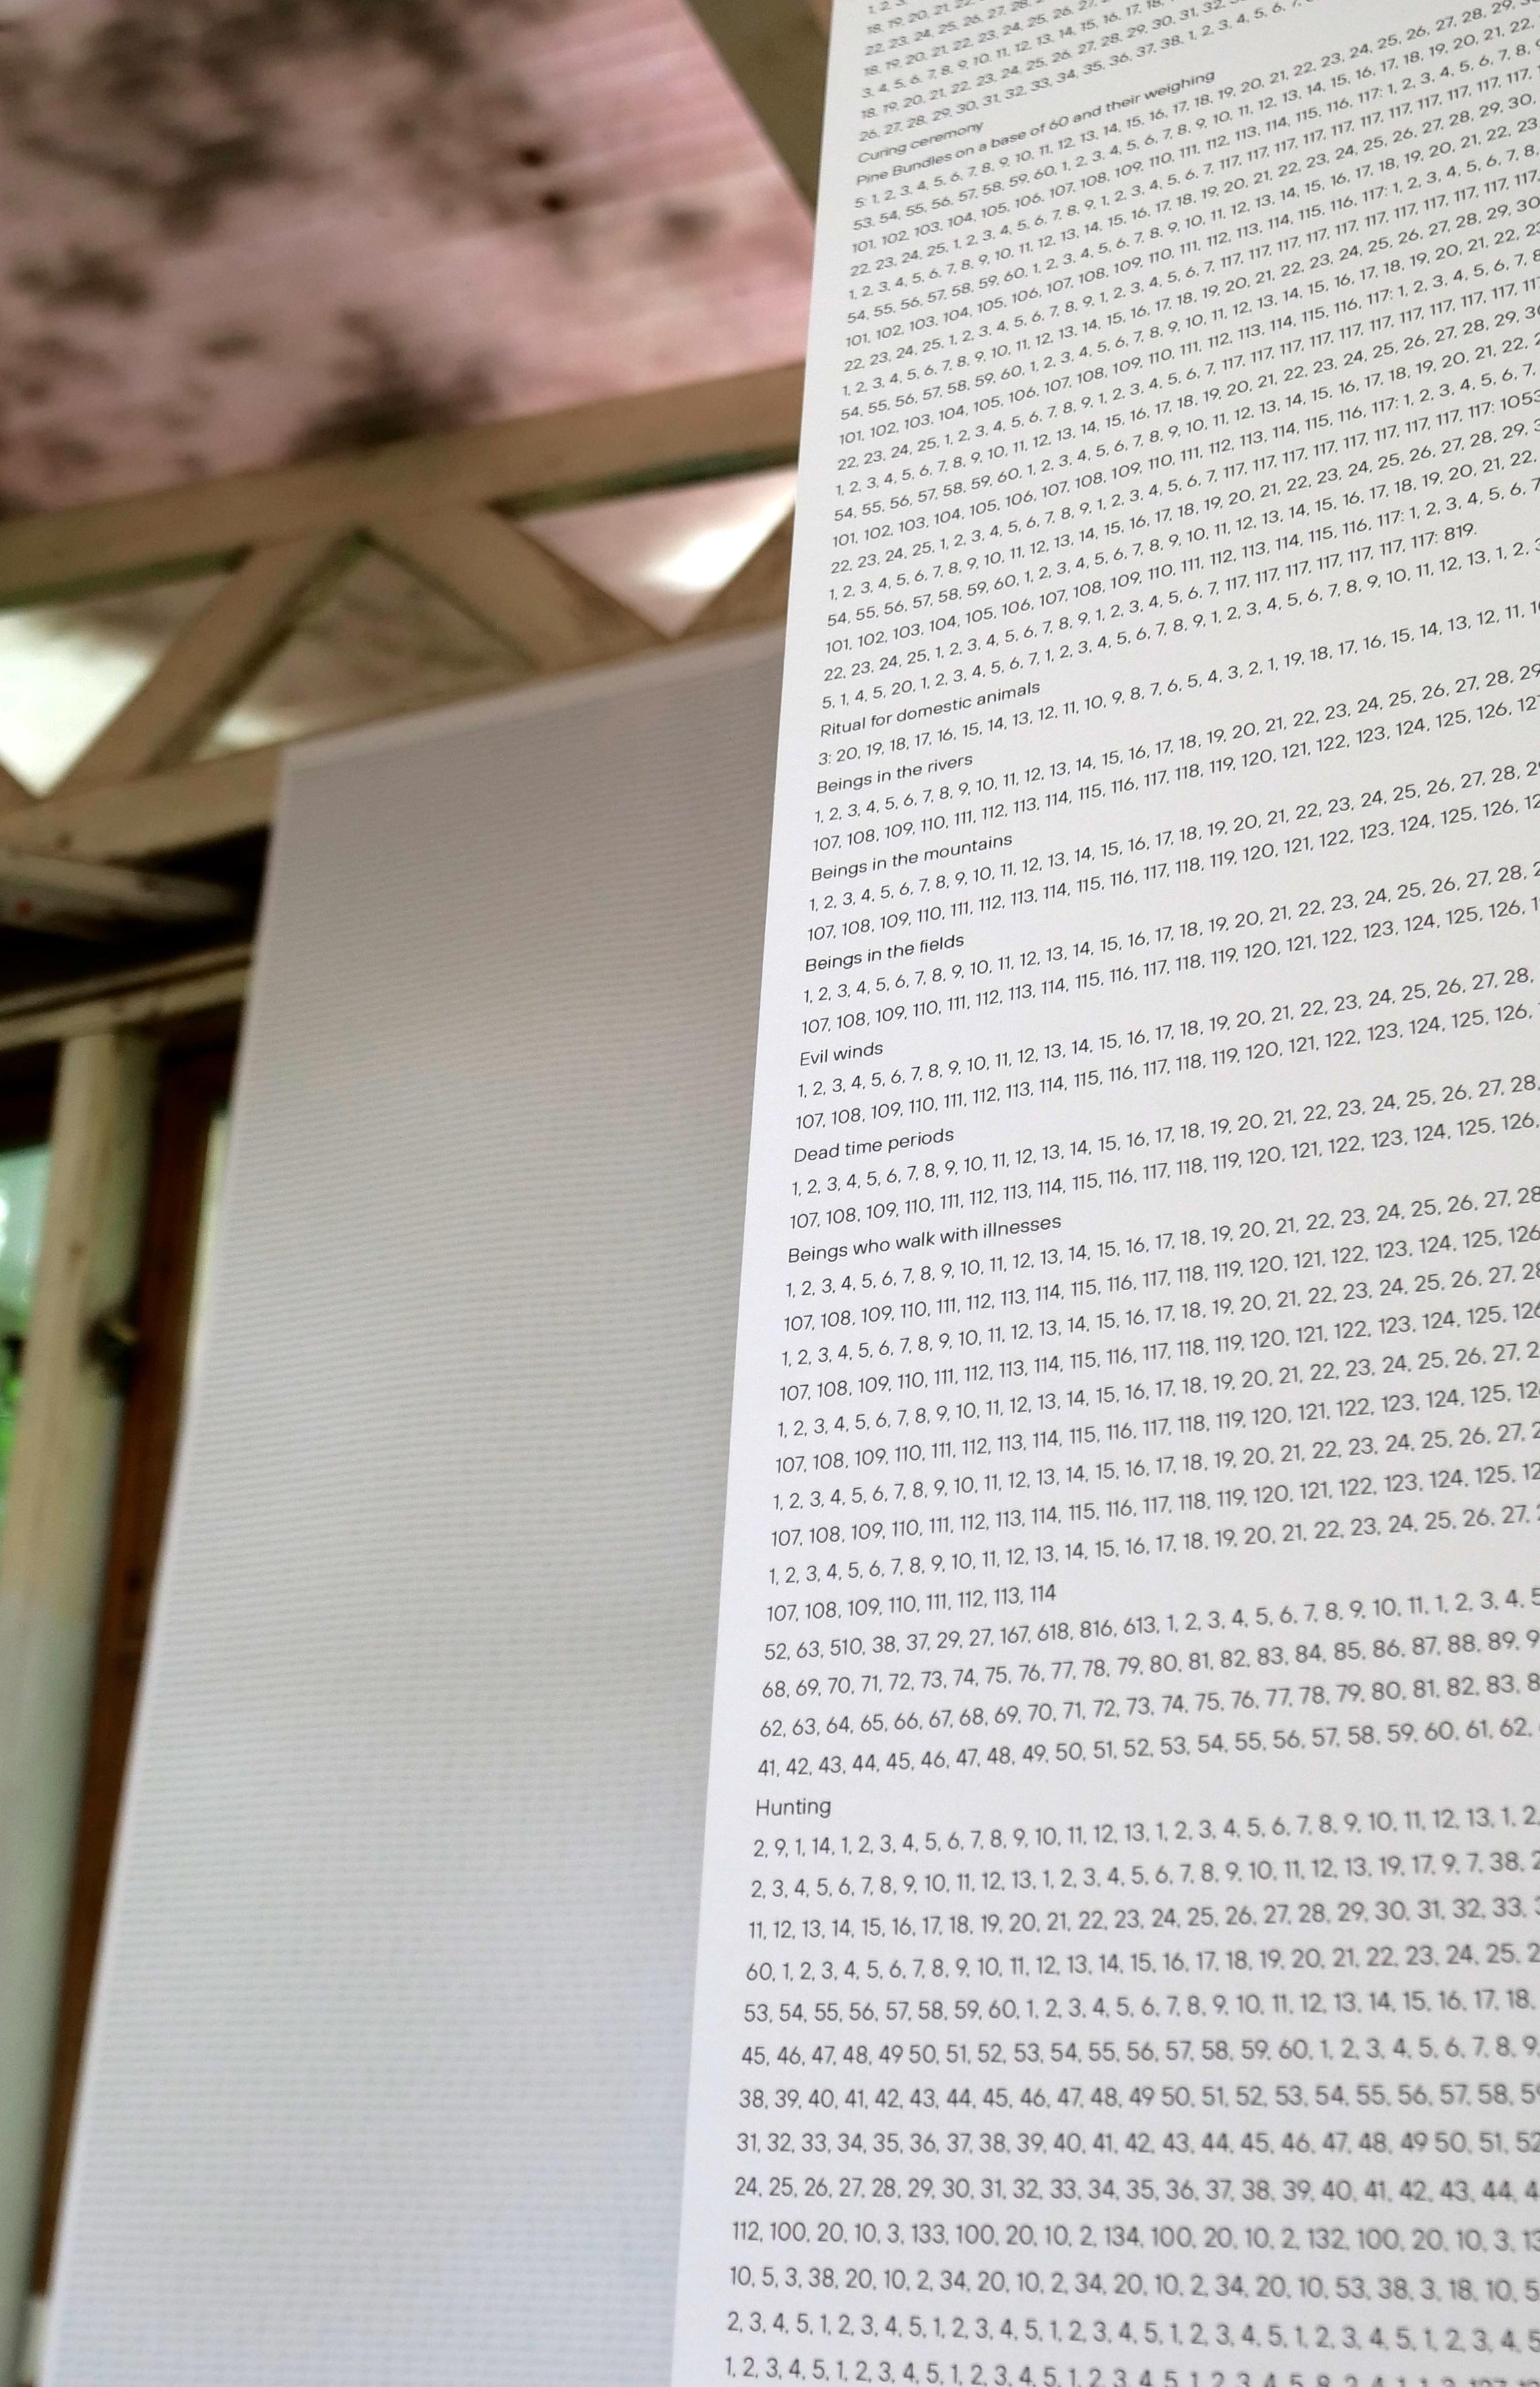 18, 19, 20, 21, 22
22, 23, 24, 25, 26, 27, 28
18, 19, 20, 21, 22, 23, 24, 25, 26, 27
3, 4, 5, 6, 7, 8, 9, 10, 11, 12, 13, 14, 15, 16, 17, 18
18, 19, 20, 21, 22, 23, 24, 25, 26, 27, 28, 29, 30, 31, 32
26, 27, 28, 29, 30, 31, 32, 33, 34, 35, 36, 37, 38, 1, 2, 3, 4, 5, 6, 7
Curing ceremony
Pine Bundles on a base of 60 and their weighing
5: 1, 2, 3, 4, 5, 6, 7, 8, 9, 10, 11, 12, 13, 14, 15, 16, 17, 18, 19, 20, 21, 22, 23, 24, 25, 26, 27, 28, 29
53, 54, 55, 56, 57, 58, 59, 60, 1, 2, 3, 4, 5, 6, 7, 8, 9, 10, 11, 12, 13, 14, 15, 16, 17, 18, 19, 20, 21, 22
101, 102, 103, 104, 105, 106, 107, 108, 109, 110, 111, 112, 113, 114, 115, 116, 117: 1, 2, 3, 4, 5, 6, 7, 8
22, 23, 24, 25, 1, 2, 3, 4, 5, 6, 7, 8, 9, 1, 2, 3, 4, 5, 6, 7, 117, 117, 117, 117, 117, 117, 117, 117, 117
1, 2, 3, 4, 5, 6, 7, 8, 9, 10, 11, 12, 13, 14, 15, 16, 17, 18, 19, 20, 21, 22, 23, 24, 25, 26, 27, 28, 29, 30
54, 55, 56, 57, 58, 59, 60, 1, 2, 3, 4, 5, 6, 7, 8, 9, 10, 11, 12, 13, 14, 15, 16, 17, 18, 19, 20, 21, 22, 23
101, 102, 103, 104, 105, 106, 107, 108, 109, 110, 111, 112, 113, 114, 115, 116, 117: 1, 2, 3, 4, 5, 6, 7, 8
22, 23, 24, 25, 1, 2, 3, 4, 5, 6, 7, 8, 9, 1, 2, 3, 4, 5, 6, 7, 117, 117, 117, 117, 117, 117, 117, 117, 117
1, 2, 3, 4, 5, 6, 7, 8, 9, 10, 11, 12, 13, 14, 15, 16, 17, 18, 19, 20, 21, 22, 23, 24, 25, 26, 27, 28, 29, 30
54, 55, 56, 57, 58, 59, 60, 1, 2, 3, 4, 5, 6, 7, 8, 9, 10, 11, 12, 13, 14, 15, 16, 17, 18, 19, 20, 21, 22
101, 102, 103, 104, 105, 106, 107, 108, 109, 110, 111, 112, 113, 114, 115, 116, 117: 1, 2, 3, 4, 5, 6, 7, 8
22, 23, 24, 25, 1, 2, 3, 4, 5, 6, 7, 8, 9, 1, 2, 3, 4, 5, 6, 7, 117, 117, 117, 117, 117, 117, 117, 117, 117
1, 2, 3, 4, 5, 6, 7, 8, 9, 10, 11, 12, 13, 14, 15, 16, 17, 18, 19, 20, 21, 22, 23, 24, 25, 26, 27, 28, 29
54, 55, 56, 57, 58, 59, 60, 1, 2, 3, 4, 5, 6, 7, 8, 9, 10, 11, 12, 13, 14, 15, 16, 17, 18, 19, 20, 21, 22
101, 102, 103, 104, 105, 106, 107, 108, 109, 110, 111, 112, 113, 114, 115, 116, 117: 1, 2, 3, 4, 5, 6, 7
22, 23, 24, 25, 1, 2, 3, 4, 5, 6, 7, 8, 9, 1, 2, 3, 4, 5, 6, 7, 117, 117, 117, 117, 117, 117, 117, 117, 117: 1053
1, 2, 3, 4, 5, 6, 7, 8, 9, 10, 11, 12, 13, 14, 15, 16, 17, 18, 19, 20, 21, 22, 23, 24, 25, 26, 27, 28, 29
54, 55, 56, 57, 58, 59, 60, 1, 2, 3, 4, 5, 6, 7, 8, 9, 10, 11, 12, 13, 14, 15, 16, 17, 18, 19, 20, 21, 22
101, 102, 103, 104, 105, 106, 107, 108, 109, 110, 111, 112, 113, 114, 115, 116, 117: 1, 2, 3, 4, 5, 6, 7
22, 23, 24, 25, 1, 2, 3, 4, 5, 6, 7, 8, 9, 1, 2, 3, 4, 5, 6, 7, 117, 117, 117, 117, 117, 117, 117: 819.
5, 1, 4, 5, 20, 1, 2, 3, 4, 5, 6, 7, 1, 2, 3, 4, 5, 6, 7, 8, 9, 1, 2, 3, 4, 5, 6, 7, 8, 9, 10, 11, 12, 13, 1, 2, 3
Ritual for domestic animals
3: 20, 19, 18, 17, 16, 15, 14, 13, 12, 11, 10, 9, 8, 7, 6, 5, 4, 3, 2, 1, 19, 18, 17, 16, 15, 14, 13, 12, 11, 10
Beings in the rivers
1, 2, 3, 4, 5, 6, 7, 8, 9, 10, 11, 12, 13, 14, 15, 16, 17, 18, 19, 20, 21, 22, 23, 24, 25, 26, 27, 28, 29
107, 108, 109, 110, 111, 112, 113, 114, 115, 116, 117, 118, 119, 120, 121, 122, 123, 124, 125, 126, 127
Beings in the mountains
1, 2, 3, 4, 5, 6, 7, 8, 9, 10, 11, 12, 13, 14, 15, 16, 17, 18, 19, 20, 21, 22, 23, 24, 25, 26, 27, 28, 29
107, 108, 109, 110, 111, 112, 113, 114, 115, 116, 117, 118, 119, 120, 121, 122, 123, 124, 125, 126, 12
Beings in the fields
1, 2, 3, 4, 5, 6, 7, 8, 9, 10, 11, 12, 13, 14, 15, 16, 17, 18, 19, 20, 21, 22, 23, 24, 25, 26, 27, 28, 2
107, 108, 109, 110, 111, 112, 113, 114, 115, 116, 117, 118, 119, 120, 121, 122, 123, 124, 125, 126, 1
Evil winds
1, 2, 3, 4, 5, 6, 7, 8, 9, 10, 11, 12, 13, 14, 15, 16, 17, 18, 19, 20, 21, 22, 23, 24, 25, 26, 27, 28,
107, 108, 109, 110, 111, 112, 113, 114, 115, 116, 117, 118, 119, 120, 121, 122, 123, 124, 125, 126,
Dead time periods
1, 2, 3, 4, 5, 6, 7, 8, 9, 10, 11, 12, 13, 14, 15, 16, 17, 18, 19, 20, 21, 22, 23, 24, 25, 26, 27, 28,
107, 108, 109, 110, 111, 112, 113, 114, 115, 116, 117, 118, 119, 120, 121, 122, 123, 124, 125, 126,
Beings who walk with illnesses
1, 2, 3, 4, 5, 6, 7, 8, 9, 10, 11, 12, 13, 14, 15, 16, 17, 18, 19, 20, 21, 22, 23, 24, 25, 26, 27, 28
107, 108, 109, 110, 111, 112, 113, 114, 115, 116, 117, 118, 119, 120, 121, 122, 123, 124, 125, 126
1, 2, 3, 4, 5, 6, 7, 8, 9, 10, 11, 12, 13, 14, 15, 16, 17, 18, 19, 20, 21, 22, 23, 24, 25, 26, 27, 28
107, 108, 109, 110, 111, 112, 113, 114, 115, 116, 117, 118, 119, 120, 121, 122, 123, 124, 125, 126
1, 2, 3, 4, 5, 6, 7, 8, 9, 10, 11, 12, 13, 14, 15, 16, 17, 18, 19, 20, 21, 22, 23, 24, 25, 26, 27, 2
107, 108, 109, 110, 111, 112, 113, 114, 115, 116, 117, 118, 119, 120, 121, 122, 123, 124, 125, 12
1, 2, 3, 4, 5, 6, 7, 8, 9, 10, 11, 12, 13, 14, 15, 16, 17, 18, 19, 20, 21, 22, 23, 24, 25, 26, 27, 2
107, 108, 109, 110, 111, 112, 113, 114, 115, 116, 117, 118, 119, 120, 121, 122, 123, 124, 125, 12
1, 2, 3, 4, 5, 6, 7, 8, 9, 10, 11, 12, 13, 14, 15, 16, 17, 18, 19, 20, 21, 22, 23, 24, 25, 26, 27,
107, 108, 109, 110, 111, 112, 113, 114
52, 63, 510, 38, 37, 29, 27, 167, 618, 816, 613, 1, 2, 3, 4, 5, 6, 7, 8, 9, 10, 11, 1, 2, 3, 4, 5
68, 69, 70, 71, 72, 73, 74, 75, 76, 77, 78, 79, 80, 81, 82, 83, 84, 85, 86, 87, 88, 89, 9
62, 63, 64, 65, 66, 67, 68, 69, 70, 71, 72, 73, 74, 75, 76, 77, 78, 79, 80, 81, 82, 83, 8
41, 42, 43, 44, 45, 46, 47, 48, 49, 50, 51, 52, 53, 54, 55, 56, 57, 58, 59, 60, 61, 62,
Hunting
2, 9, 1, 14, 1, 2, 3, 4, 5, 6, 7, 8, 9, 10, 11, 12, 13, 1, 2, 3, 4, 5, 6, 7, 8, 9, 10, 11, 12, 13, 1, 2,
2, 3, 4, 5, 6, 7, 8, 9, 10, 11, 12, 13, 1, 2, 3, 4, 5, 6, 7, 8, 9, 10, 11, 12, 13, 19, 17, 9, 7, 38, 2
11, 12, 13, 14, 15, 16, 17, 18, 19, 20, 21, 22, 23, 24, 25, 26, 27, 28, 29, 30, 31, 32, 33, 3
60, 1, 2, 3, 4, 5, 6, 7, 8, 9, 10, 11, 12, 13, 14, 15, 16, 17, 18, 19, 20, 21, 22, 23, 24, 25, 2
53, 54, 55, 56, 57, 58, 59, 60, 1, 2, 3, 4, 5, 6, 7, 8, 9, 10, 11, 12, 13, 14, 15, 16, 17, 18,
45, 46, 47, 48, 49 50, 51, 52, 53, 54, 55, 56, 57, 58, 59, 60, 1, 2, 3, 4, 5, 6, 7, 8, 9,
38, 39, 40, 41, 42, 43, 44, 45, 46, 47, 48, 49 50, 51, 52, 53, 54, 55, 56, 57, 58, 59
31, 32, 33, 34, 35, 36, 37, 38, 39, 40, 41, 42, 43, 44, 45, 46, 47, 48, 49 50, 51, 52
24, 25, 26, 27, 28, 29, 30, 31, 32, 33, 34, 35, 36, 37, 38, 39, 40, 41, 42, 43, 44, 4
112, 100, 20, 10, 3, 133, 100, 20, 10, 2, 134, 100, 20, 10, 2, 132, 100, 20, 10, 3, 13
10, 5, 3, 38, 20, 10, 2, 34, 20, 10, 2, 34, 20, 10, 2, 34, 20, 10, 53, 38, 3, 18, 10, 5
2, 3, 4, 5, 1, 2, 3, 4, 5, 1, 2, 3, 4, 5, 1, 2, 3, 4, 5, 1, 2, 3, 4, 5, 1, 2, 3, 4, 5, 1, 2, 3, 4, 5
1, 2, 3, 4, 5, 1, 2, 3, 4, 5, 1, 2, 3, 4, 5, 1, 2, 3, 4, 5, 1, 2, 3, 4, 5